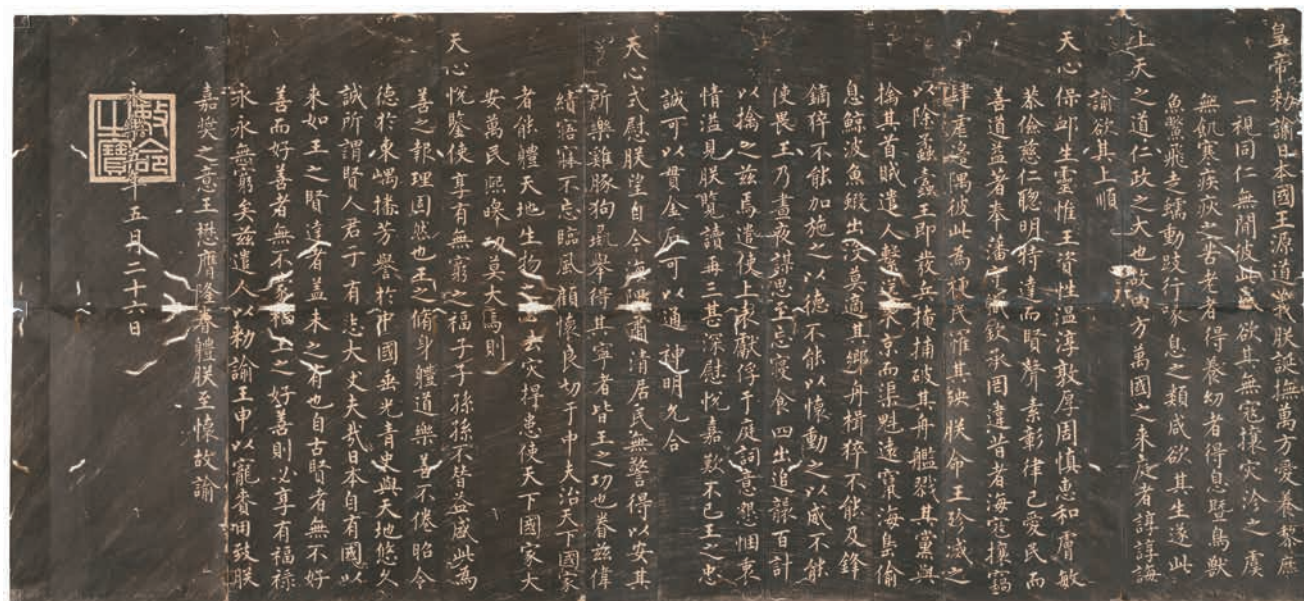 皇帝勅諭日本國王源道義朕誕撫萬方愛養黎庶
一視同仁無間彼此咸欲其無寇攘災沴之虞
無飢寒疾疢之苦老者得養幼者得息暨鳥獸
魚鱉飛走蠕動跂行喙息之類咸欲其生遂此
上天之道仁政之大也故四方萬國之來庭者諄諄誨
諭欲其上順
天心保卹生靈惟王資性温淳敦厚周慎惠和膚敏
恭儉慈仁聰明特達而賢聲素彰律己愛民而
善道益著奉藩守職欽承罔違昔者海寇攘竊
肆虐邊隅彼此為梗民罹其殃朕命王珍滅之
以除蟊蠹王即發兵擒捕破其舟艦戮其黨與
擒其首賊遣人繫送來京而渠魁遠竄海島偷
息鯨波魚緞出沒莫適其鄉舟楫猝不能及鋒
鏑猝不能加施之以德不能以懷動之以威不能
使畏王乃晝夜謀思至忘寢食四出追躡百計
以擒之茲焉遣使上表獻俘于庭詞意懇悃衷
情溢見朕覽讀再三甚深慰悦嘉歎不已王之忠
誠可以貫金石可以通神明允合
天心式慰朕望自今海隅肅清居民無警得以安其
所樂雞豚狗彘舉得其寧者皆王之功也眷茲偉
績寤寐不忘臨風顧懷良切于中夫治天下國家
者能體天地生物之心去災捍患使天下國家大
安萬民熙皞功莫大焉則
天心悦鑒使享有無窮之福子子孫孫不替益盛此為
善之報理固然也王之脩身軆道樂善不倦昭令
德於東嵎播芳譽於中國垂光青史與天地悠久
誠所謂賢人君子有志大丈夫哉日本自有國以
來如王之賢達者蓋未之有也自古賢者無不好
善而好善者無不受福王之好善則必享有福祿
永永無窮矣茲遣人以勅諭王申以寵賚用致朕
嘉奬之意王懋膺隆眷軆朕至懷故諭
永樂年五月二十六日
敕命之寶